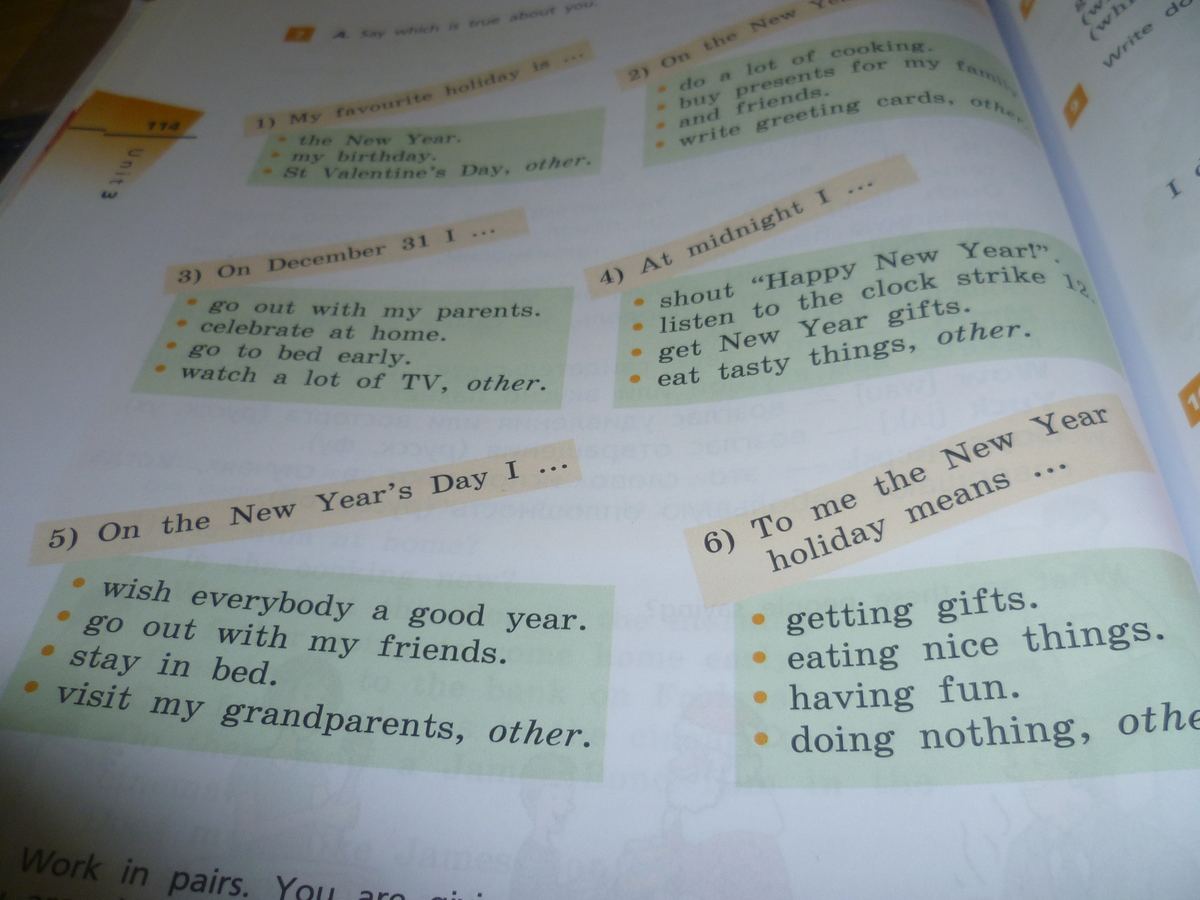 7 A. Say which is true about you.
114
Unit 3
1) My favourite holiday is ...
• the New Year.
• my birthday.
• St Valentine's Day, other.
2) On the New
• do a lot of cooking.
• buy presents for my
• and friends.
• write greeting cards,
3) On December 31 I ...
• go out with my parents.
• celebrate at home.
• go to bed early.
• watch a lot of TV, other.
4) At midnight I ...
• shout "Happy New Year!".
• listen to the clock strike 12.
• get New Year gifts.
• eat tasty things, other.
5) On the New Year's Day I ...
• wish everybody a good year.
• go out with my friends.
• stay in bed.
• visit my grandparents, other.
6) To me the New Year
holiday means ...
• getting gifts.
• eating nice things.
• having fun.
• doing nothing,
Work in pairs. You are
Write
9
I